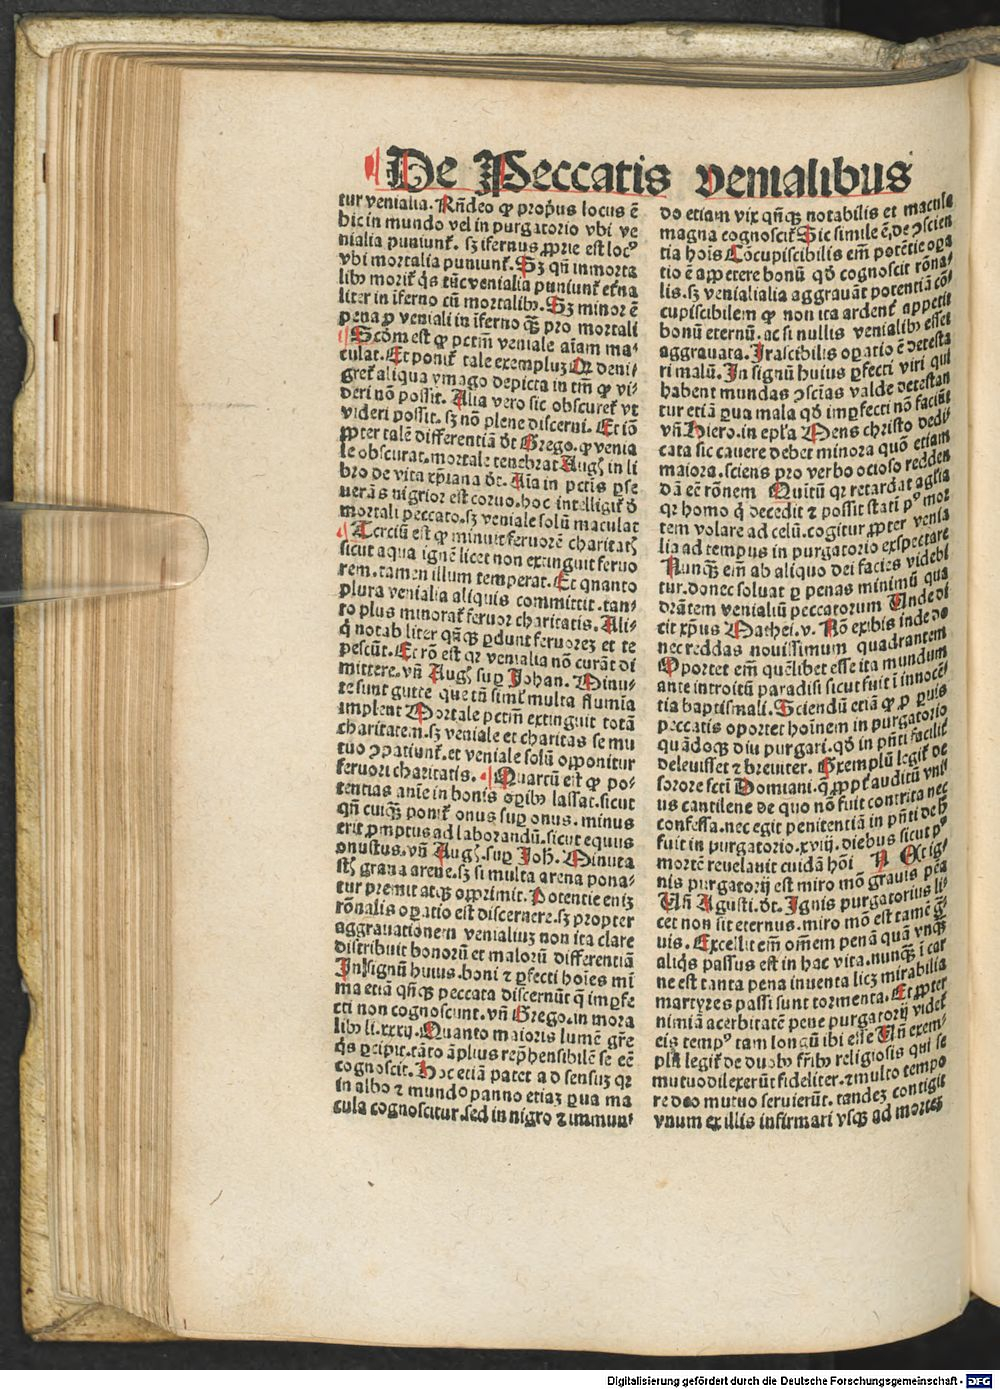 De Peccatis venialibus
tur venialia. Rñdeo ꝙ ꝓprius locus ē
hic in mundo vel in purgatorio vbi ve
nialia puniunt᷑. sꝫ ifernus ꝓprie est locꝰ
vbi mortalia puniunt᷑. Sꝫ qñ in morta
libꝰ morit᷑ q̇s tūc venialia puniunt᷑ et̄na
liter in īferno cū mortalibꝰ. Sꝫ minor ē
pena ꝓ veniali in īferno q̄ꝫ pro mortali
Scd̄m est ꝙ pctm̄ veniale aīam ma⸗
culat. Et ponit᷑ tale exempluꝫ Qꝛ deni⸗
gret᷑ aliqua ymago depicta in tm̄ ꝙ vi⸗
deri nō possit. Alia vero sic obscuret᷑ vt
videri possit. sꝫ nō plene discerni. Et iō
ꝓpter talē differentiā dt̄ Grego. ꝙ venia
le obscurat. mortale tenebrat Augꝰ in li
bro de vita xp̄iana dt̄. Aīa in pctīs ꝑse
uerās nigrior est coruo. hoc intelligit᷑ ð
mortali peccato. sꝫ veniale solū maculat
Terciū est ꝙ minuit feruorē charitatꝭ
sicut aqua ignē licet non extinguit feruo
rem. tamen illum temperat. Et quanto
plura venialia aliquis committit. tan⸗
to plus minorat᷑ feruor charitatis. Ali⸗
q̄ notabiliter qñqꝫ ꝑdunt feruoreꝫ et te
pescūt. Et rō est qꝛ venialia nō curāt di
mittere. vñ Augꝰ suꝑ Johan. Minu⸗
te sunt gutte que tñ siml᷑ multa flumia
implent Mortale pctm̄ extinguit totā
charitatem. sꝫ veniale et charitas se mu
tuo ↄpatiunt᷑. et veniale solū opponitur
feruori charitatis. Quartū est ꝙ po⸗
tentias anīe in bonis oꝑibꝰ lassat. sicut
qñ cuiqꝫ ponit᷑ onus suꝑ onus. minus
erit ꝓmptus ad laborandū. sicut equus
onustus. vñ Augꝰ. suꝑ Joh̄. Minuta
st̄ grana arene. sꝫ si multa arena pona⸗
tur premit atqꝫ opprimit. Potentie eniꝫ
rōnalis oꝑatio est discernere. sꝫ propter
aggrauationem venialiuꝫ non ita clare
distribuit bonorū et malorū differentiā
In signū huius. boni ⁊ ꝑfecti hoīes mī
ma etiā qñqꝫ peccata discernūt q̄ imꝑfe
cti non cognoscunt. vñ Grego. in mora
libꝰ li. xxxij. Quanto maioris lumē gr̄e
q̇s ꝑcipit. tāto āplius rep̄hensibilē se eē
cognoscit. Hoc etiā patet ad sensuꝫ qꝛ
in albo ⁊ mundo panno etiaꝫ ꝑua ma
cula cognoscitur. sed in nigro ⁊ immun⸗
do etiam vix qñqꝫ notabilis et macula
magna cognoscit᷑ Sic simile ē, de ↄscien
tia hoīs Cōcupiscibilis em̄ potētie oꝑa
tio ē appetere bonū qð cognoscit rōna⸗
lis. sꝫ venialialia aggrauāt potentiā cō⸗
cupiscibilem ꝙ non ita ardent᷑ appetit
bonū eternū. ac si nullis venialibꝰ esset
aggrauata. Irascibilis oꝑatio ē detesta
ri malū. In signū huius ꝑfecti viri qui
habent mundas ↄscīas valde detestan
tur etiā ꝑua mala qð imꝑfecti nō faciūt
vñ Hiero. in epl̄a Mens christo dedi⸗
cata sic cauere debet minora quō etiam
maiora. sciens pro verbo ocioso redden
dā eē rōnem Quītū qꝛ retardat a gl̄ia
qꝛ homo q̄ decedit ⁊ possit statī pꝰ mor
tem volare ad celū. cogitur ꝓpter venia
lia ad tempus in purgatorio exspectare
Nunqꝫ em̄ ab aliquo dei facies videbi
tur. donec soluat ꝑ penas minimū qua
drātem venialiū peccatorum Unde di
cit xp̄us Mathei. v. Nō exibis inde do
nec reddas nouissimum quadrantem
Oportet em̄ quēlibet esse ita mundum
ante introitū paradisi sicut fuit ī innocē⸗
tia baptismali. Sciendū etiā ꝙ ꝓ ꝑuis
peccatis oportet hoīnem in purgatorio
quādoqꝫ diu purgari. qð in pñti facilit᷑
deleuisset ⁊ breuiter. Exemplū legit᷑ de
sorore sctī Domiani. q̄ ꝓpt᷑ auditū vni⸗
us cantilene de quo nō fuit contrita nec
confessa. nec egit penitentiā in pñti de hꝰ
fuit in purgatorio. xviij. diebus sicut pꝰ
mortē reuelauit cuidā hoī Et ig⸗
nis purgatorij est miro mō grauis pēa
Uñ Agusti. dt̄. Ignis purgatorius li⸗
cet non sit eternus. miro mō est tamē g̃⸗
uis. Excellit em̄ om̄em penā quā vnqꝫ
aliq̇s passus est in hac vita. nunqꝫ ī car
ne est tanta pena inuenta licꝫ mirabilia
martyres passi sunt tormenta. Et ꝓpter
nimiā acerbitatē pene purgatorij videt᷑
eis tempꝰ tam longū ibi esse Uñ exem⸗
plū legit᷑ de duobꝰ fr̄ibꝰ religiosis qui se
mutuo dilexerūt fideliter. ⁊ multo tempo
re deo mutuo seruierūt. tandeꝫ contigit
vnum ex illis infirmari vsqꝫ ad morteꝫ
Digitalisierung gefördert durch die Deutsche Forschungsgemeinschaft - DFG